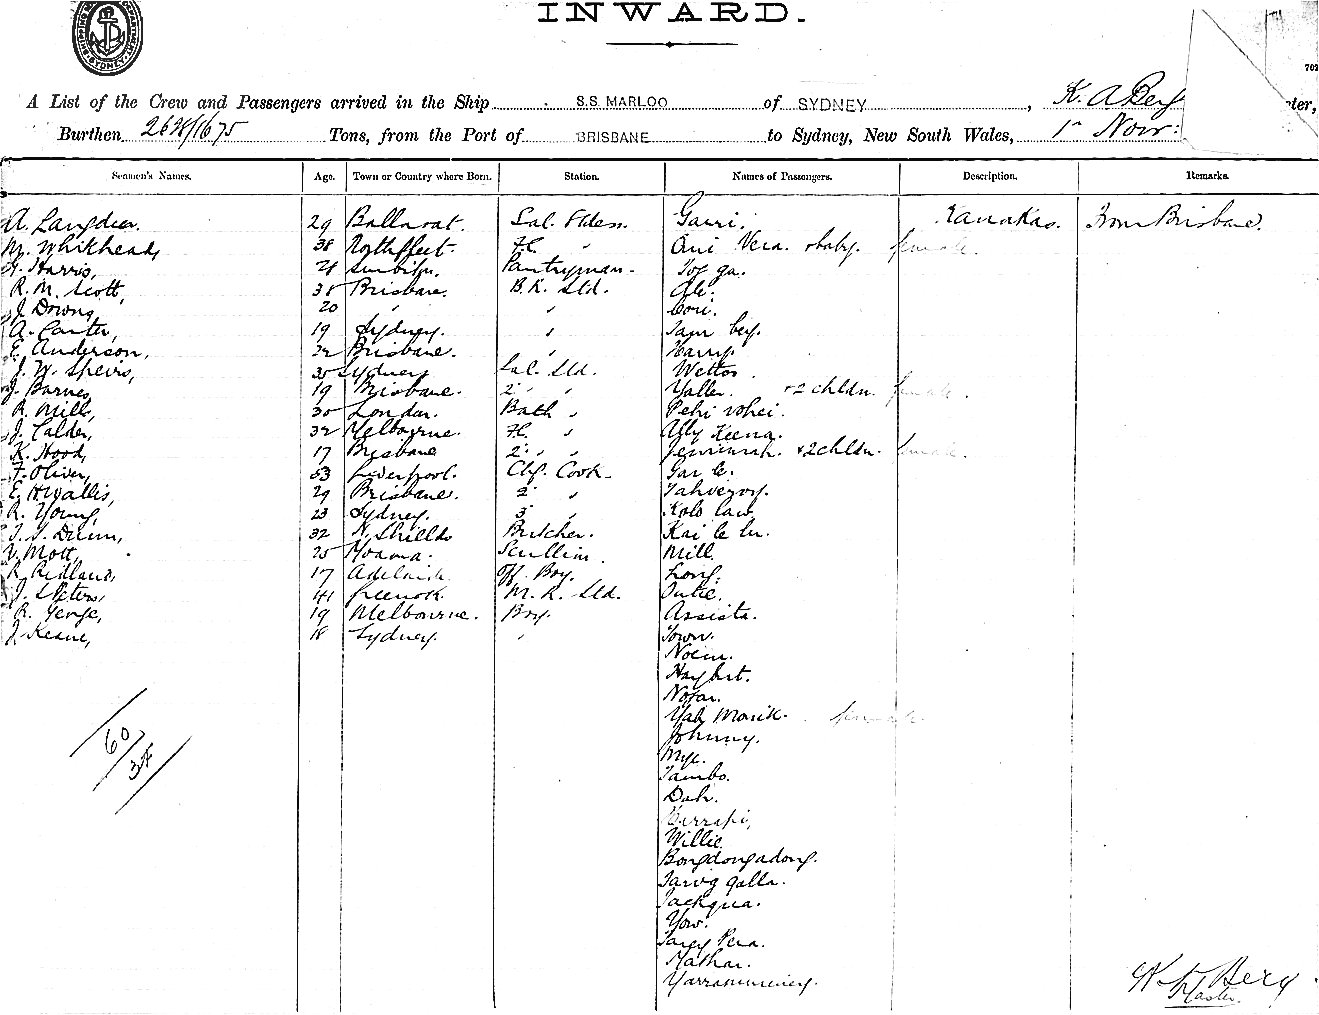 INWARD.
SYDNEY
702
A List of the Crew and Passengers arrived in the Ship S.S. MARLOO of SYDNEY, K. A Berg ter,
Burthen 2628/1675 Tons, from the Port of BRISBANE to Sydney, New South Wales, 1st Novr:
Seamen's Names. Age. Town or Country where Born. Station. Names of Passengers. Description. Remarks.
A. 29 Ballarat. Garri. Kanakas. From Brisbane.
M. Whitehead, 38 Northfleet. F.C. " Ani Vera. & baby. female.
Harris, Pantryman. Tof ga.
R. M. Scott, 38 Brisbane. B.R. Std. Oli.
J. Downs, 20 " " Cori.
A. Carter, 19 Sydney. " Sam bey.
E. Anderson, 22 Brisbane. " Harry.
J. W. Speirs, 35 Sydney Sal. Std. Wettos.
J. Barnes, 19 Brisbane. 2 " " Yaller. & 2 chldn. female.
R. Mills, 30 London. Bath " Petri vohei.
J. Calder, 32 Melbourne. F.C. " Ally Keena.
K. Hood, 17 Brisbane 2 " " & 2 chldn. female.
F. Oliver, 53 Liverpool. Chf. Cook. Gar le.
E. H Wallis, 29 Brisbane. 2 "
R. Young, 23 Sydney. 3 " Kolo law.
Dunn, 32 N. Shields Butcher. Kai le lu.
V. Mott, 25 Moama. Scullion. Mill.
R. Ridland, 17 Adelaide. Off. Boy. Long.
J. Peters, 41 Greenock. M. R. Std. Tutie.
R. George, 19 Melbourne. Boy. Assista.
J. Keane, 18 Sydney. " Town.
Noein.
Haybert.
Nofar.
Yah Monik. female.
Johnny.
Mye.
Tambo.
Dah.
Karrapi,
Willie.
60/34
Bongdongadong.
Tarog galla.
Jackqua.
Yow.
Targy Pera.
Mathar.
Yarramminey.
K A Berg
Master.